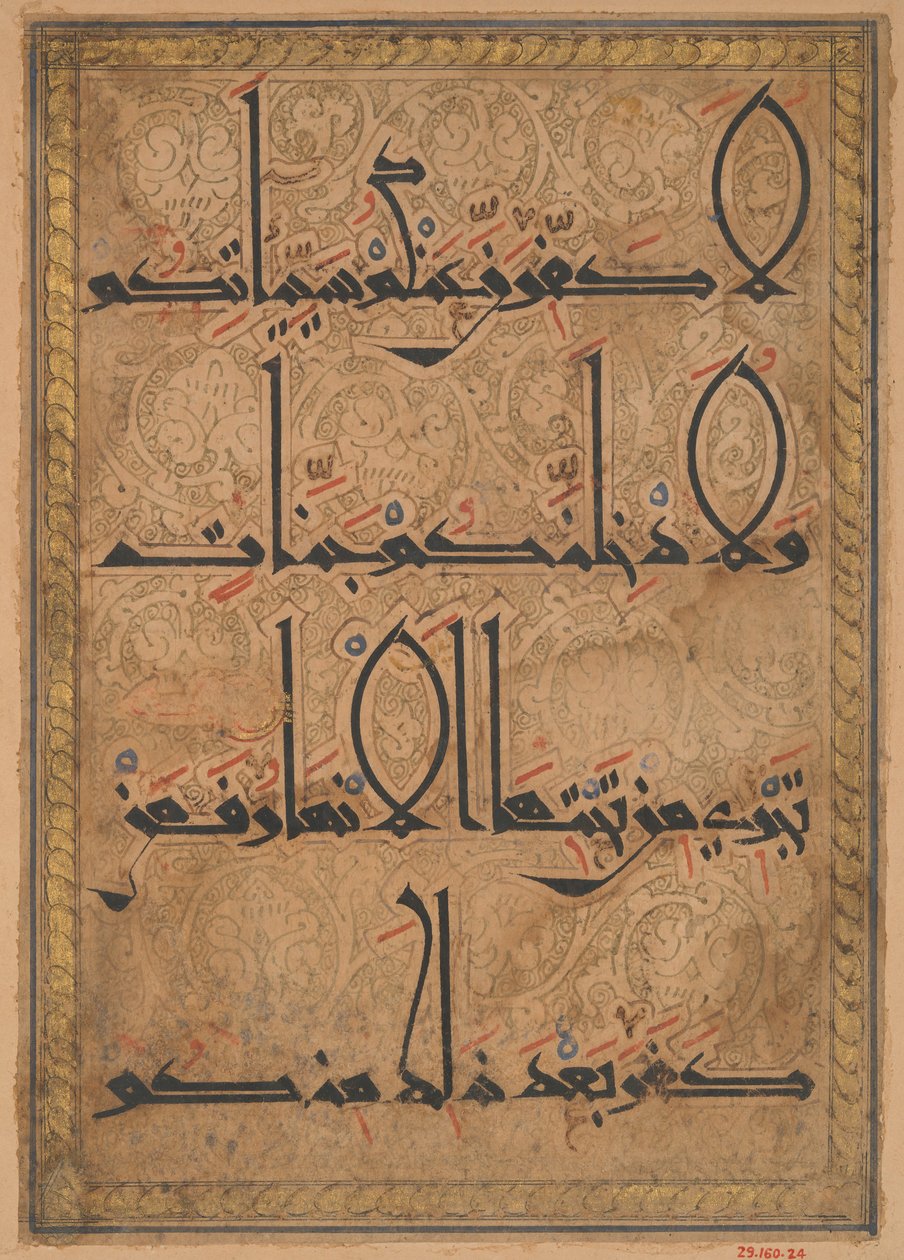 لَأُكَفِّرَنَّ عَنْكُمْ سَيِّئَاتِكُمْ
وَلَأُدْخِلَنَّكُمْ جَنَّاتٍ
تَجْرِي مِنْ تَحْتِهَا الْأَنْهَارُ فَمَنْ
كَفَرَ بَعْدَ ذَلِكَ مِنْكُمْ
29.160-24